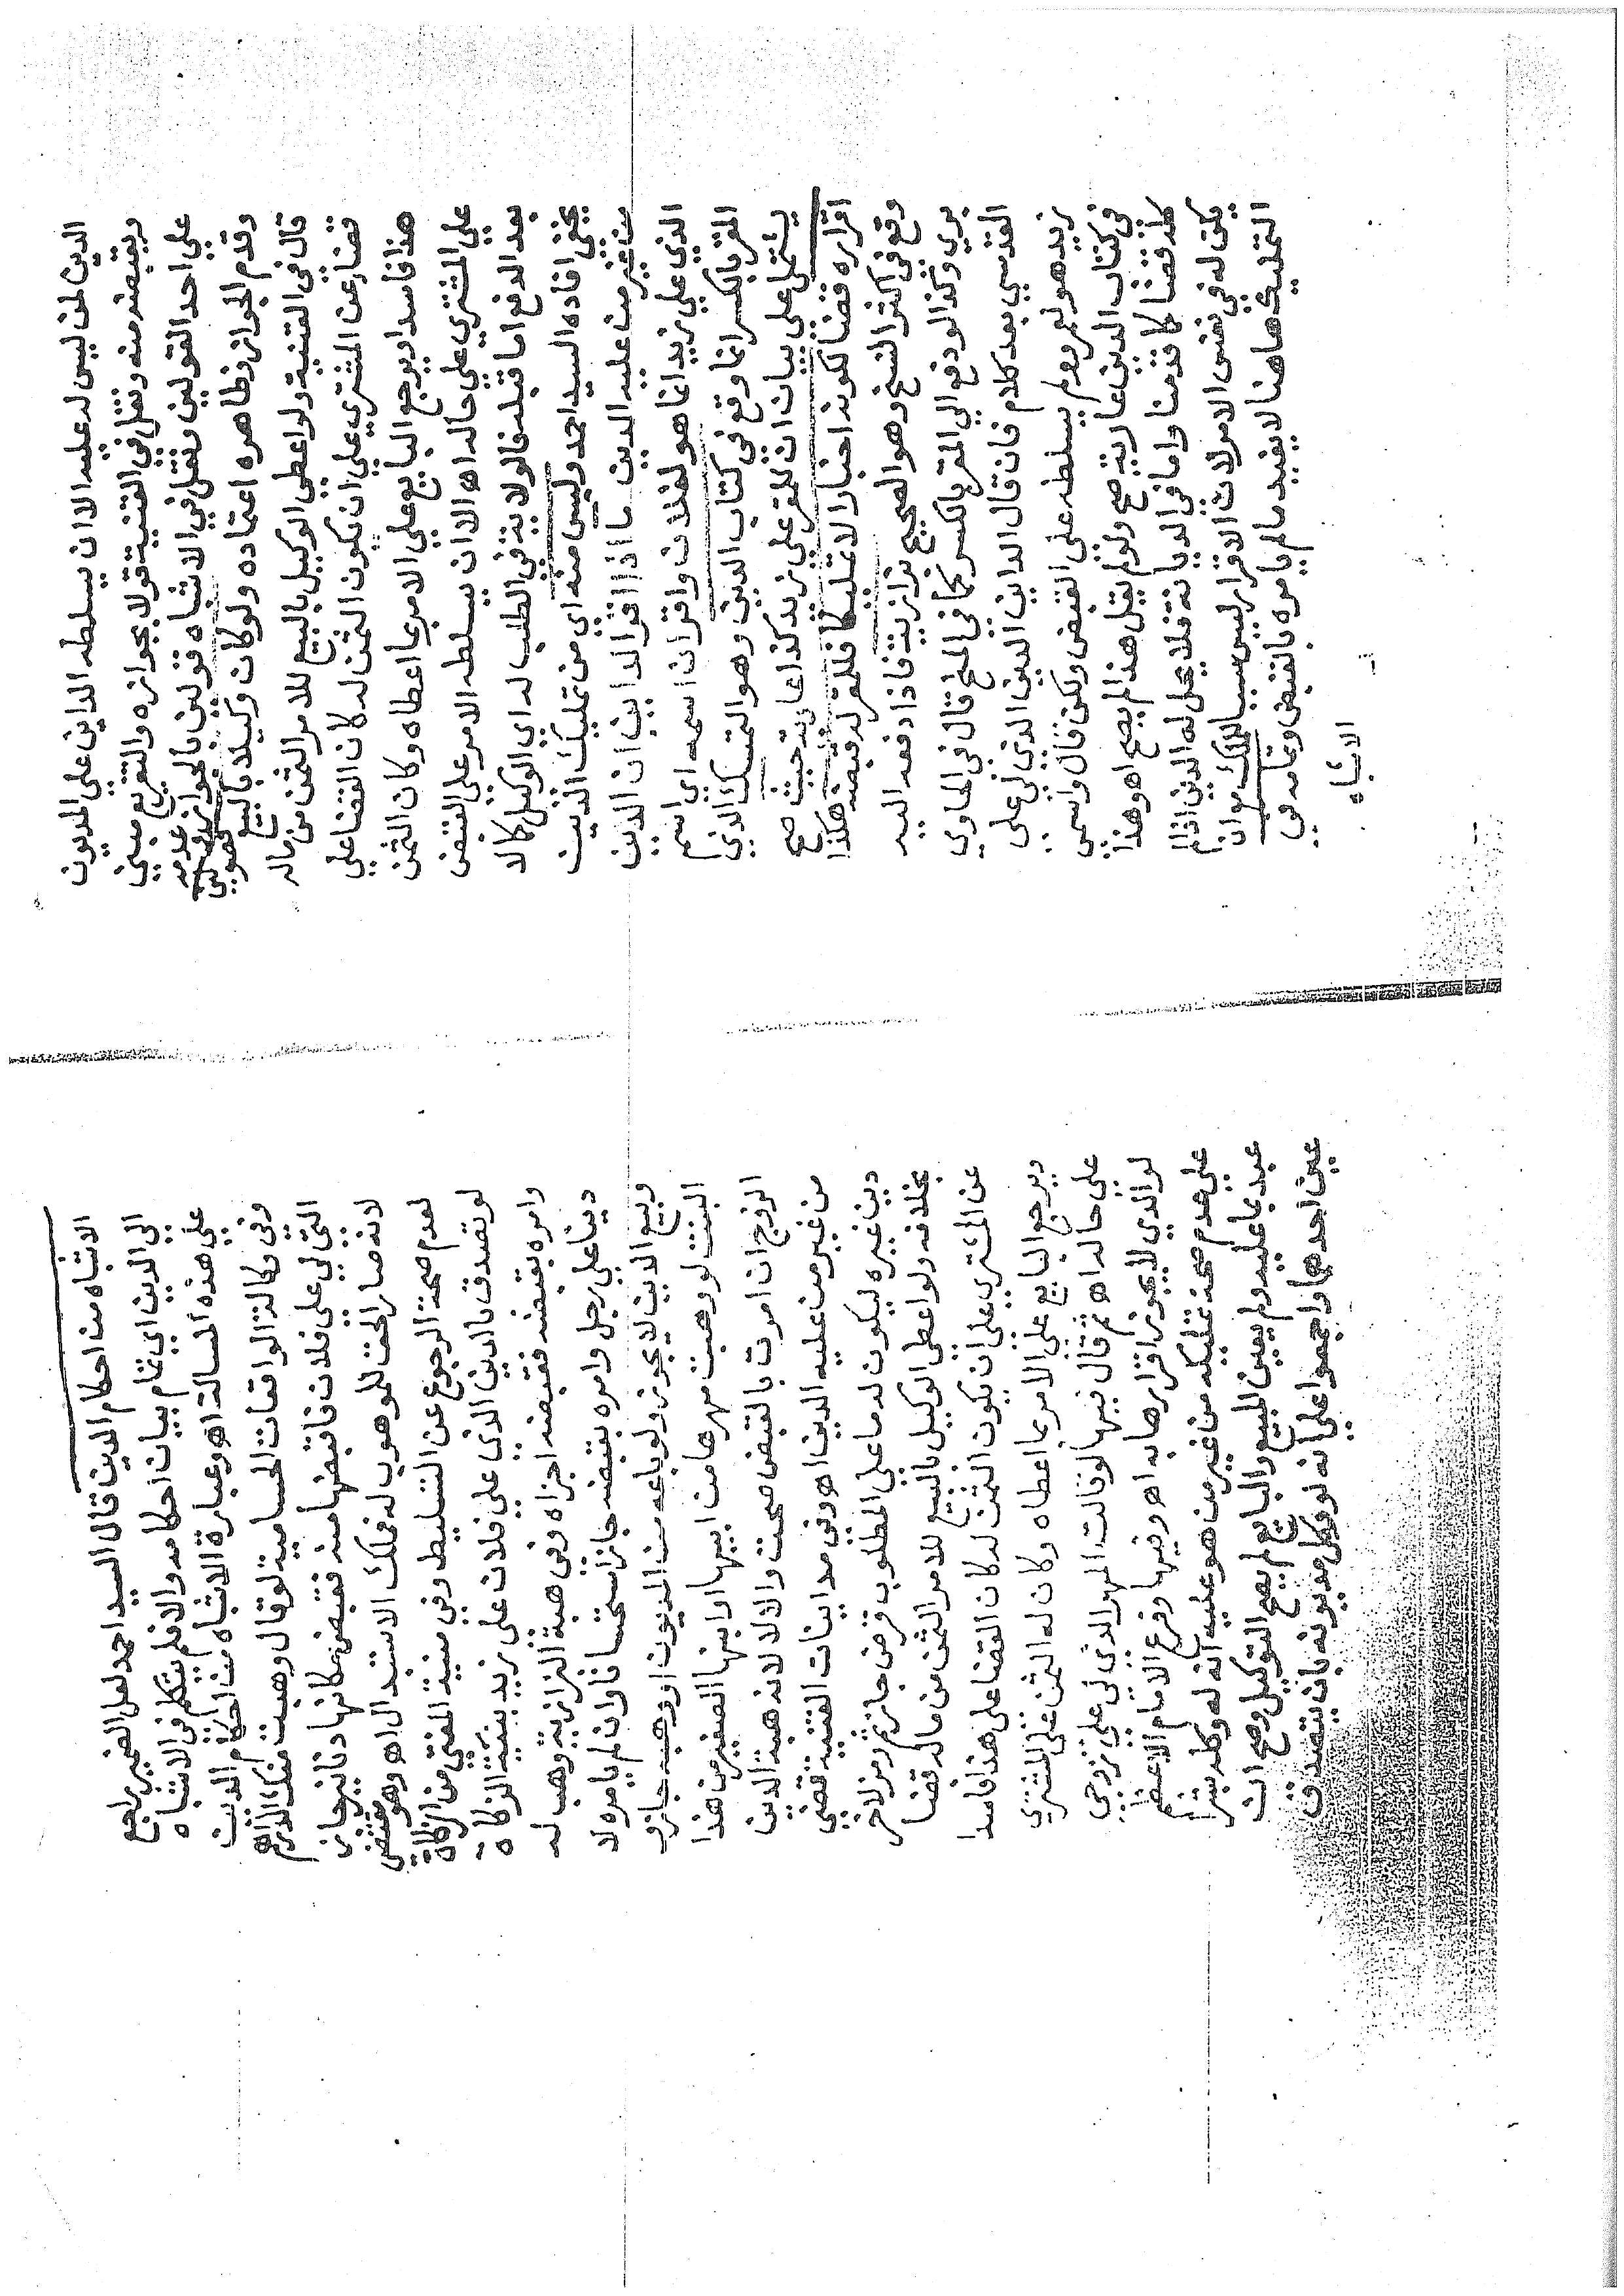 الدين لمن ليس له عليه الا ان يسلطه الداين علي المديون
ويقبضه منه ونقل في القنية قولا بجوازه والتفريع مبني
علي احد القولين ونقل في الاشباه قولين بالجواز وعدمه
وقدم الجواز وظاهره اعتماده ولو كان وكيلا بالبيع
قال في القنية ولو اعطي الوكيل بالبيع للامر الثمن من ماله
قضا عن المشتري علي ان يكون الثمن له كان القضا علي
هذا فاسدا ويرجع البايع علي الامر بما اعطاه وكان الثمن
علي المشتري علي حاله اه الا ان يسلطه الامر علي القبض
بعد الدفع اما قبله فالولاية في الطلب له اي الوكيل كما لا
يخفي افاده السيد احمد وليس منه اي من تمليك الدين
من غير من عليه الدين ما اذا اقر الداين ان الدين
الذي علي زيد انما هو لفلان واقر ان اسمه اي اسم
المقر بالكسر انما وقع في كتاب الدين وهو التمسك الذي
يشتمل علي بيان ان للمقر علي زيد كذا عارية حيث صح
اقراره قضا لكونه اخبارا لا تمليكا فللمقر له قبضه هكذا
وقع في اكثر النسخ وهو الصحيح بزازية فاذا دفعه اليه
بري وكذا لو دفع الي المقر بالكسر كما في المنح قال في الحاوي
القدسي بعد كلام فان قال الداين الدين الذي لي علي
زيد هو لعمرو ولم يسلطه علي القبض ولكن قال واسمي
في كتاب الدين عارية صح ولو لم يقل هذا لم يصح اه وهذا
كله قضا كما قدمنا واما في الديانة فلا يحل له الدين اذا لم
يكن له في نفس الامر لان الاقرار ليس سببا للملك مر ان
التمليك هاهنا لا يفيد ما لم يامره بالقبض وتمامه في
الاشباه
الاشباه من احكام الدين قال السيد احمد لعل الضمير راجع
الي الدين اي تمام بيان احكامه والا فلم يتكلم في الاشباه
علي هذه المسالة اه وعبارة الاشباه من احكام الدين
وفي وكالة الواقعات الحسامية لو قال وهبت منك الدراهم
التي لي علي فلان فاقبضها منه فقبض مكانها دنانير جاز
لانه صار الحق للموهوب له فملك الاستبدال اه وهو مقتضي
لعدم صحة الرجوع عن التسليط وفي منية المفتي من الزكاة
لو تصدق بالدين الذي علي فلان علي زيد بنية الزكاة
وامره بقبضه فقبضه اجزاه وفي هبة البزازية وهب له
دينا علي رجل وامره بقبضه جاز استحسانا وان لم يامره لا
وبيع الدين لا يجوز ولو باعه من المديون او وهبه جاز و
البنت لو وهبت مهرها من ابيها او ابنها الصغير من هذا
الزوج ان امرت بالقبض صحت والا لا لانه هبة الدين
من غير من عليه الدين اه وفي مداينات القنية قضي
دين غيره ليكون له ما علي المطلوب فرضي جاز ثم رمز لاخر
بخلافه ولو اعطي الوكيل بالبيع للامر الثمن من ماله قضا
عن المشتري علي ان يكون الثمن له كان القضا علي هذا فاسدا
ويرجع البايع علي الامر بما اعطاه وكان له الثمن علي المشتري
علي حاله اه ثم قال فيها لو قالت المهر الذي لي علي زوجي
لوالدي لا يجوز اقرارها به اه وفيها وفرع الامام الاعظم
علي عدم صحة تمليكه من غير من هو عليه انه لو وكله بشرا
عبد بما عليه ولم يعين المبيع والبايع لم يصح التوكيل وصح ان
عين احدهما واجمعوا علي انه لو وكل مديونه بان يتصدق